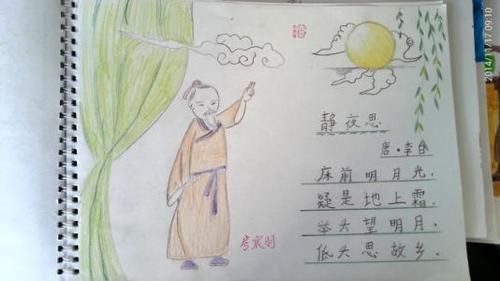 静夜思
唐·李白
床前明月光，
疑是地上霜。
举头望明月，
低头思故乡。
2014/11/17 09:10